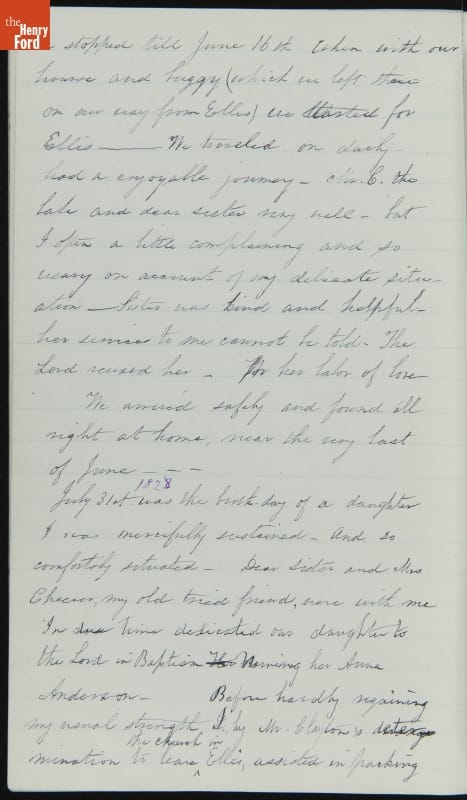 the
Henry
Ford
stopped till June 16th when with our
hourse and buggy (which we left there
on our way from Ellis) we started for
Ellis — We traveled on daily
had a enjoyable journey – Mr. C. the
babe and dear sister very well – but
I often a little complaining and so
weary on account of my delicate situ-
ation – Sister was kind and helpful –
her service to me cannot be told – The
Lord reward her – For her labor of love
We arrived safely and found all
right at home, near the very last
of June – – –
1828
July 31st was the birth-day of a daughter
I was mercifully sustained – And so
comfortably situated – Dear Sister and Mrs
Cheever, my old tried friend, were with me
In due time dedicated our daughter to
the Lord in Baptism Naming her Anna
Anderson – Before hardly regaining
my usual strength I, by Mr. Clayton's deter
the church in
mination to leave Ellis, assisted in packing